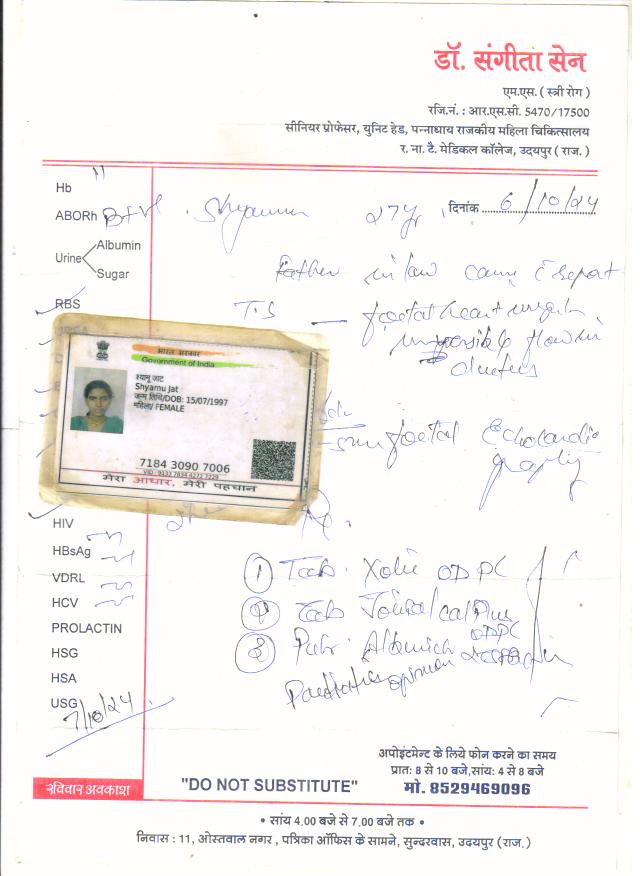 डॉ. संगीता सेन
एम.एस. ( स्त्री रोग )
रजि.नं. : आर.एस.सी. 5470/17500
सीनियर प्रोफेसर, युनिट हेड, पन्नाधाय राजकीय महिला चिकित्सालय
र. ना. टै. मेडिकल कॉलेज, उदयपुर ( राज. )
Hb 11
ABORh B+ve Shyamu 27y दिनांक 6/10/24
Urine Albumin
Sugar
Father in law came report
RBS
foetal heart
flow in
भारत सरकार
Government of India
श्यामू जाट
Shyamu Jat
जन्म तिथि/DOB: 15/07/1997
महिला/ FEMALE
foetal Echocardio
graphy
7184 3090 7006
VID : 9133 7834 4272 7229
मेरा आधार, मेरी पहचान
HIV
HBsAg
VDRL
① Tab. OD PC
HCV
② Tab Plus
PROLACTIN
OD PC
HSG
③
HSA
Paediatrics opinion
USG
7/10/24
अपोइंटमेन्ट के लिये फोन करने का समय
प्रातः 8 से 10 बजे,सांय: 4 से 8 बजे
रविवार अवकाश "DO NOT SUBSTITUTE" मो. 8529469096
• सांय 4.00 बजे से 7.00 बजे तक •
निवास : 11, ओस्तवाल नगर , पत्रिका ऑफिस के सामने, सुन्दरवास, उदयपुर (राज.)